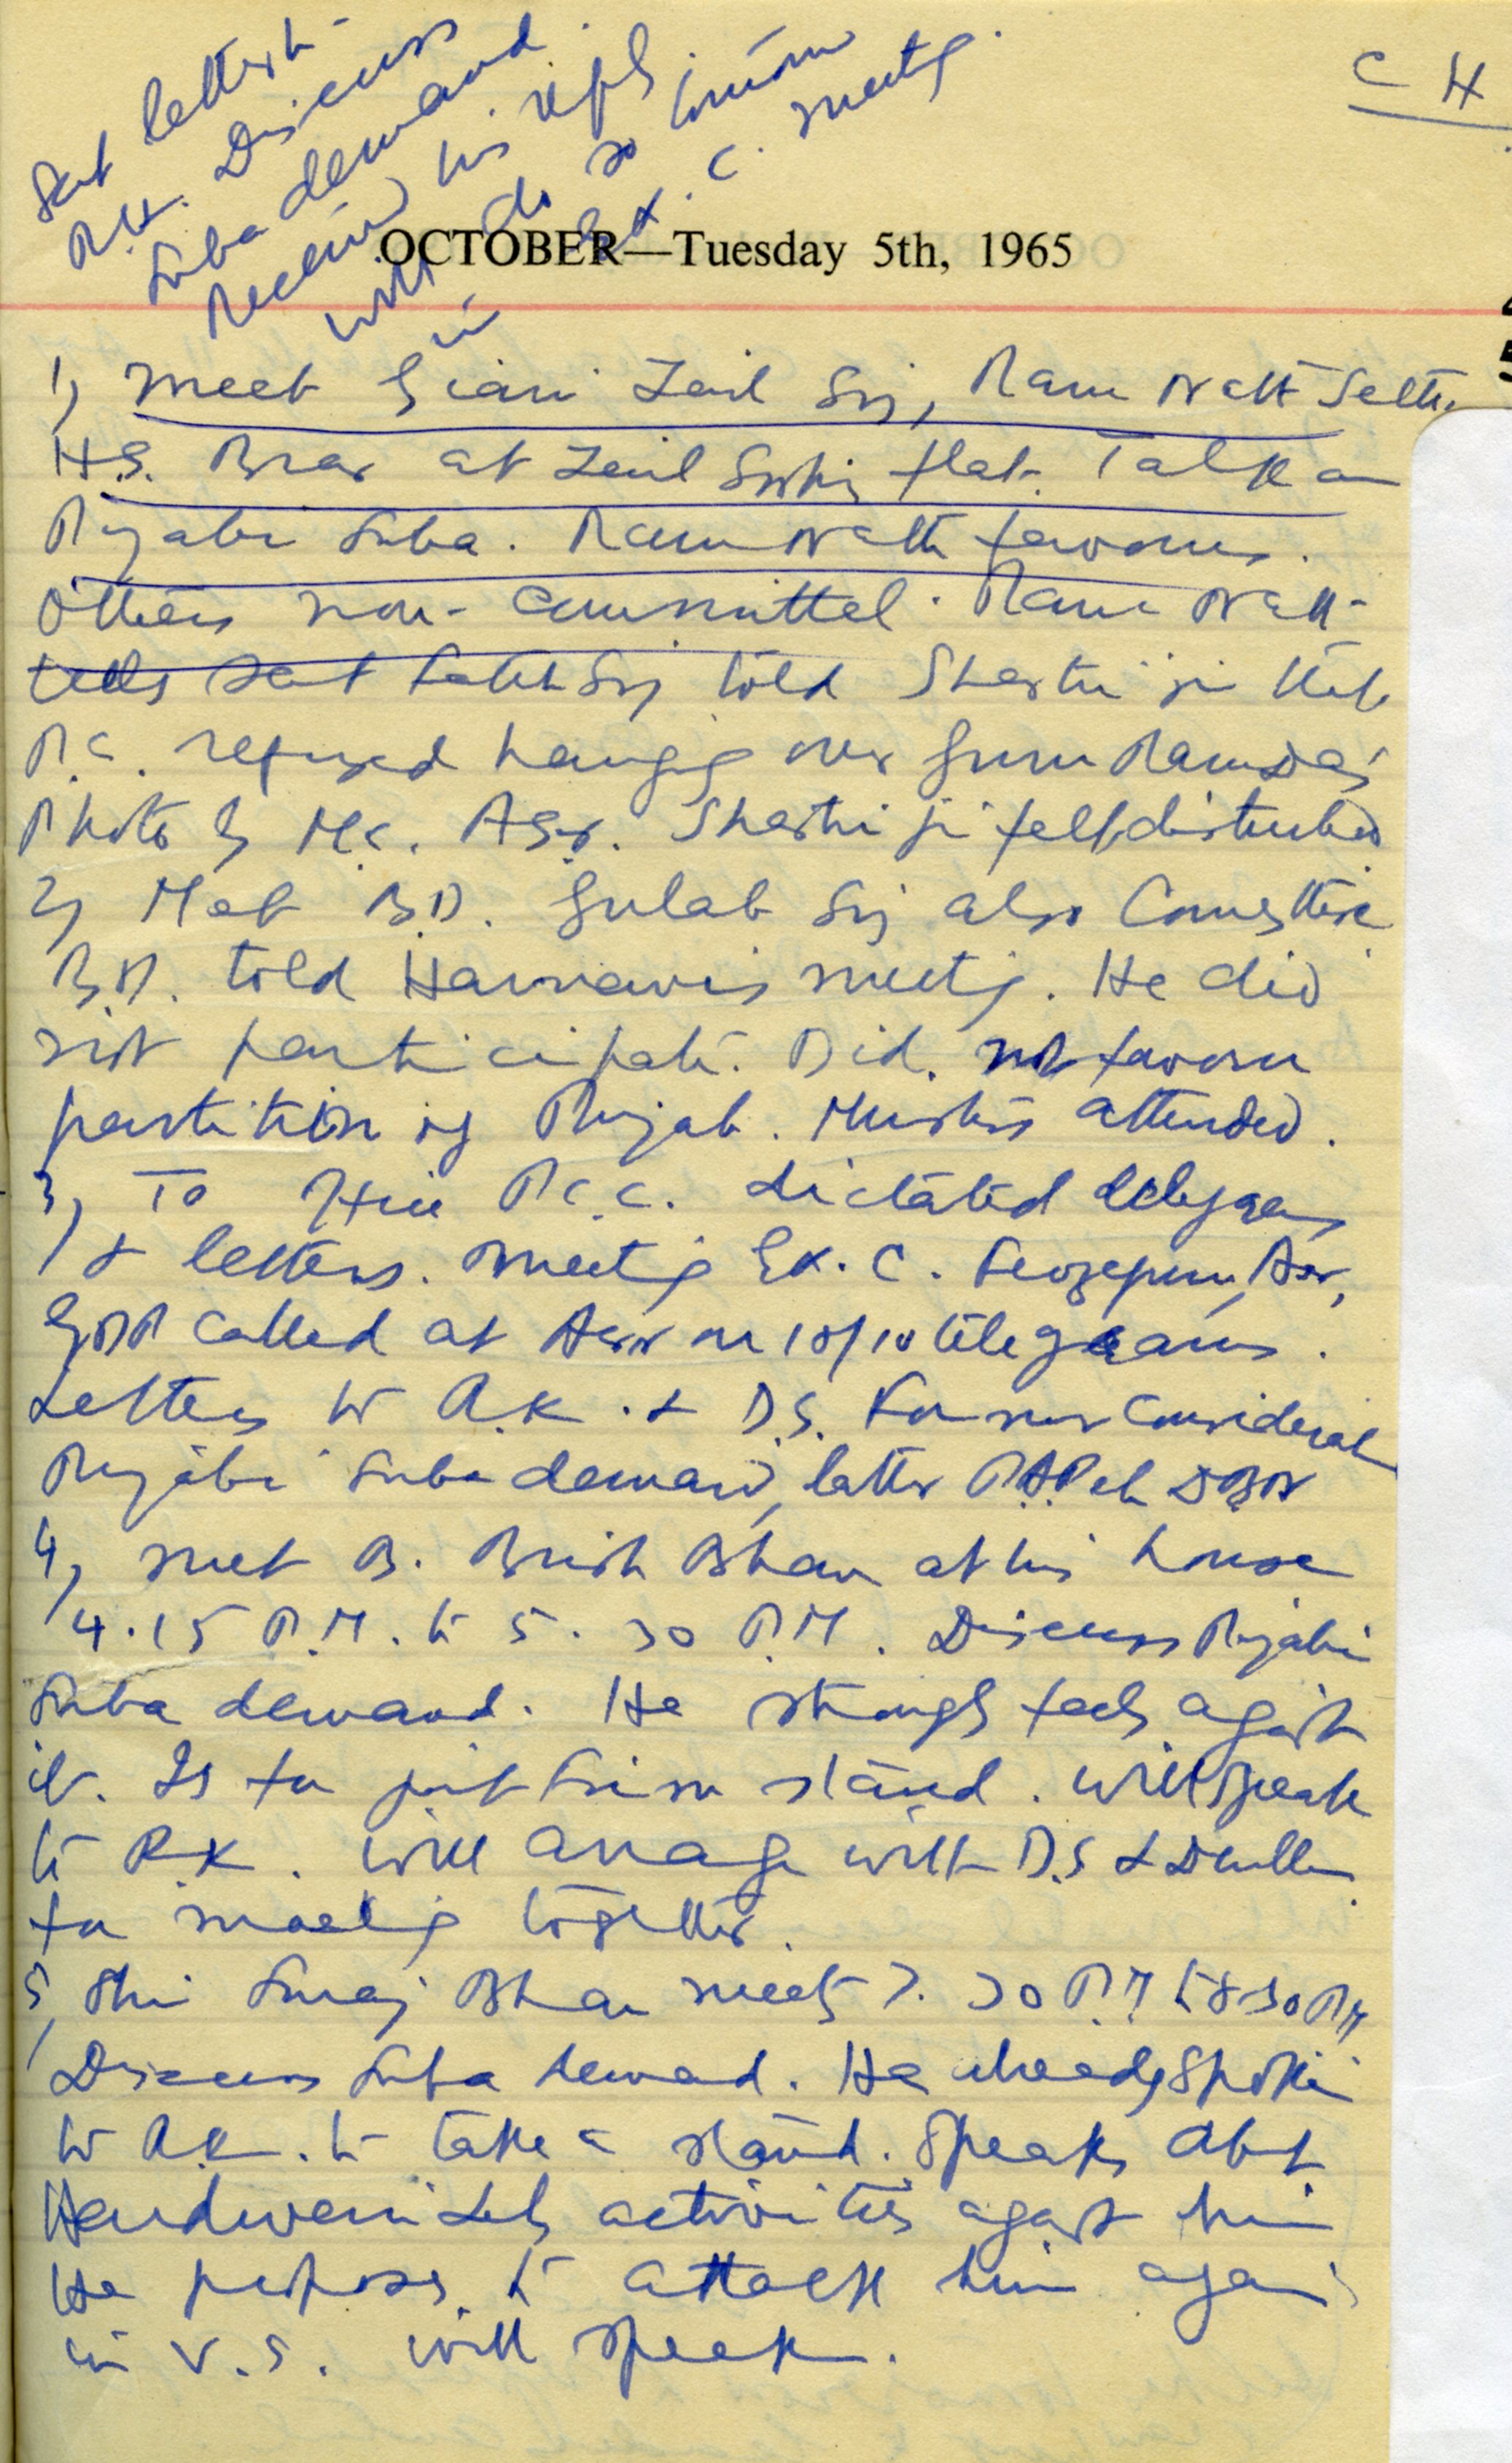 Sent letter to
R.K. Discuss
Suba demand.
Received his reply
will do so tomorrow
in Ex. C. meetg.
C H
OCTOBER—Tuesday 5th, 1965
1) Meet Giani Zail Sig, Ram Nath Seth,
H.S. Brar at Zail Sighs flat. Talk on
Pujabi Suba. Ram Nath favours.
Others non-committal. Ram Nath
tells Sant Fateh Sig told Shastri ji that
P.C. refused hangig over Guru Ramdas
Photo by M.C. Asr. Shastri ji felt disturbed
2) Met B.D. Gulab Sig also Comes there
B.D. told meetig. He did
not participate. Did. not favour
partition of Pujab. attended.
3) To P.C.C. dictated telegrams
& letters. Meetig Ex. C. Ferozepur, Asr,
GDP called at Asr on 10/10 telegrams.
Letters to R.K. & D.S. Former Consideration
Pujabi Suba demand, latter
4) Met B. Brish Bhan at his house
4.15 P.M. to 5.30 P.M. Discuss Pujabi
Suba demand. He strongly feels against
it. Is for joint firm stand. Will speak
to R.K. Will arrage with D.S &
for meetig together.
5) Shri Suraj Bhan meets 7.30 P.M to 8-30 PM
Discuss Suba demand. He already spoken
to R.K. to take a stand. Speaks abt
activities against him
He proposes to attack him again
in V.S. will speak.